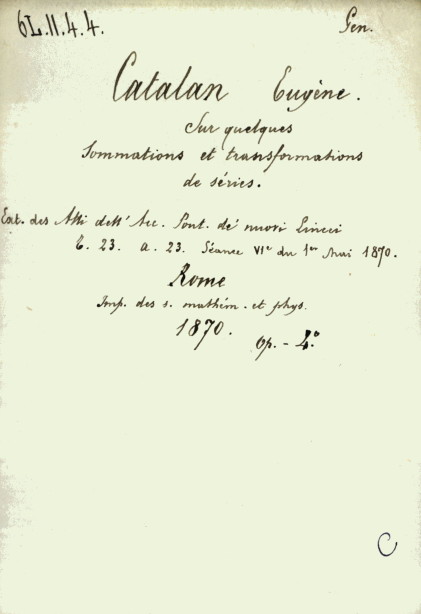 6L.II.4.4.
Gen.
Catalan Eugène.
Sur quelques
Sommations et transformations
de séries.
Ext. des Atti dell' Acc. Pont. de' nuovi Lincei
t. 23. a. 23. Séance VIe du 1er Mai 1870.
Rome
Imp. des s. mathém. et phys.
1870.
Op. - 4.°
C